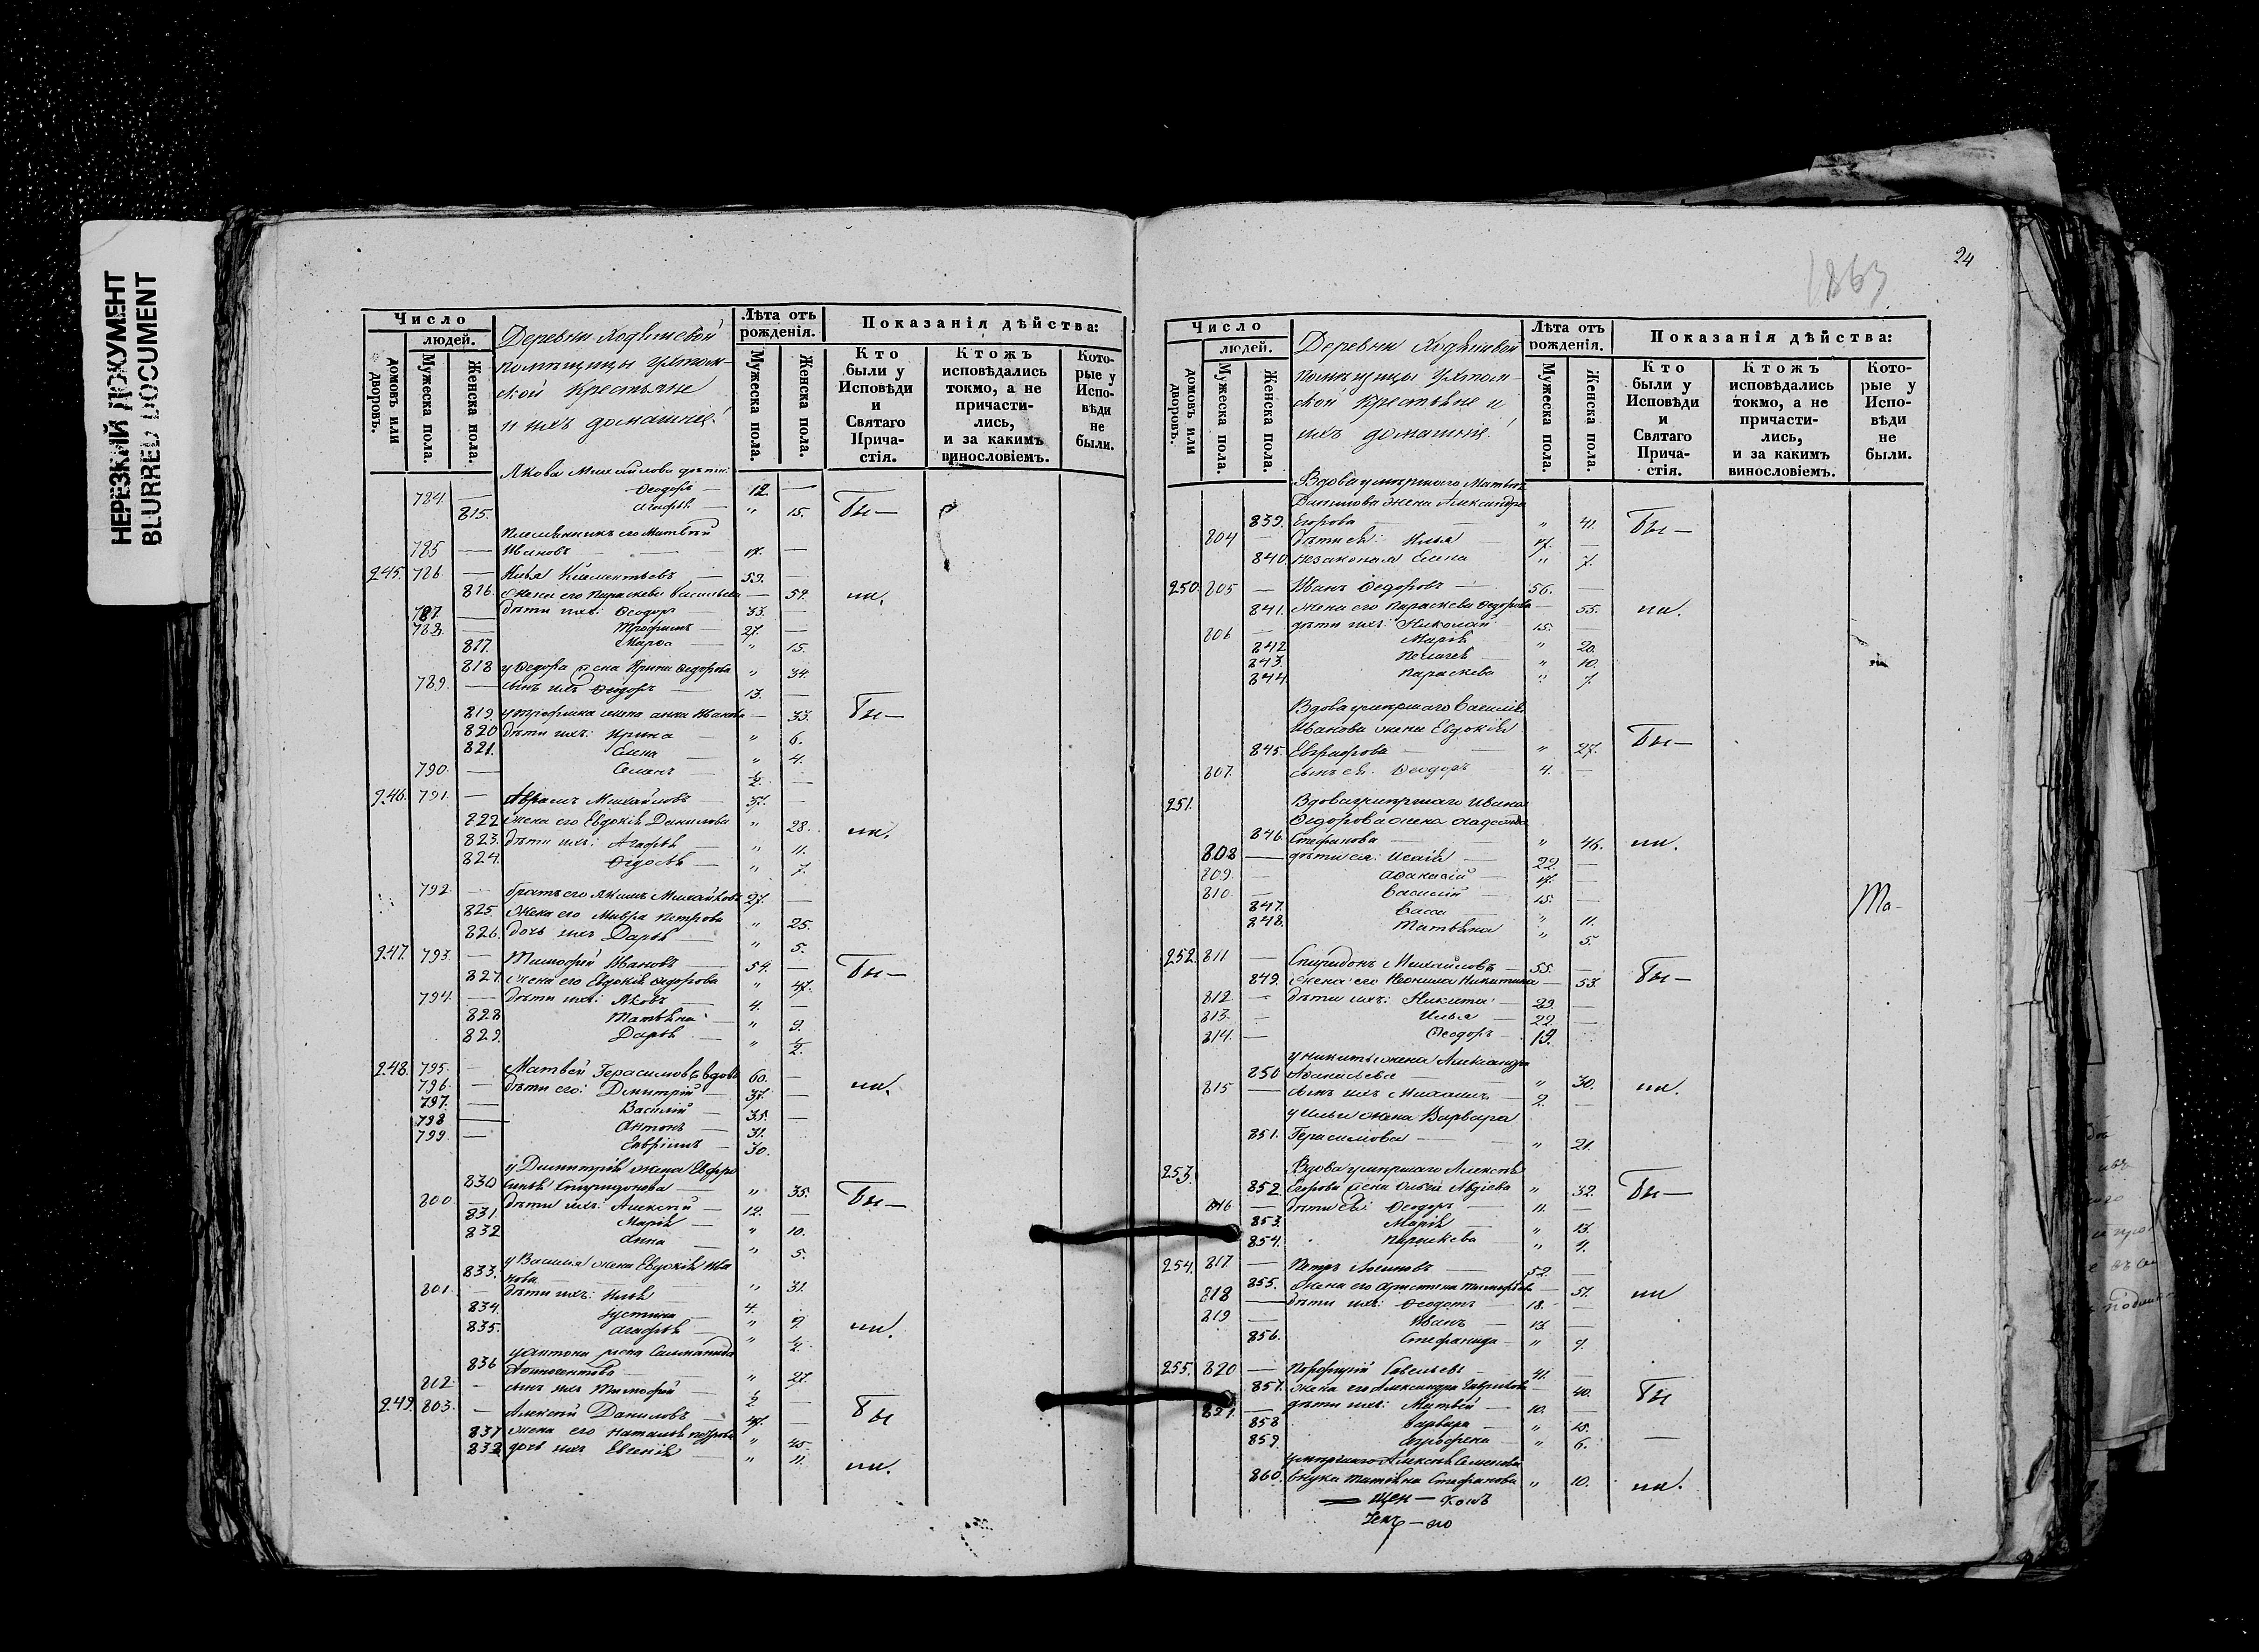 НЕРЕЗКИЙ ДОКУМЕНТ
BLURRED DOCUMENT
Число
людей.
домовъ или дворовъ.
Мужеска пола.
Женска пола.
Деревни
помѣщицы Ухтом-
ской Крестьяне
и ихъ домашніе:
Лѣта отъ рожденія.
Мужеска пола.
Женска пола.
Показанія дѣйства:
Кто были у Исповѣди и Святаго Прича-стія.
Ктожъ исповѣдались токмо, а не причасти-лись, и за какимъ винословіемъ.
Кото-рые у Испо-вѣди не были.
Якова Михайлова дѣти:
784. — Ѳеодоръ — 12. —
815. Агафья — " 15. Бы—
Племянникъ его Матвѣй
785 — Ивановъ — 17. —
245. 786. — Илья Климентьевъ — 59. —
816. Жена его Параскева Васильева — 59. ли.
787. — дѣти ихъ: Ѳеодоръ — 33. —
788. — Трофимъ — 27. —
817. Марѳа — " 15.
818 у Ѳедора жена Ирина Ѳедорова " 34.
789. — сынъ ихъ Ѳедоръ — 13. —
819. у Трофима жена Анна Иванова — 33. Бы—
820 дѣти ихъ: Ирина — " 6.
821. Елена — " 4.
790. — Семенъ — ½. —
246. 791. — Абрамъ Михайловъ — 37. —
822 Жена его Евдокія Данилова " 28. ли.
823. дѣти ихъ: Агафья — " 11.
824. Ѳедосья — " 7.
792. — братъ его Якимъ Михайловъ 27. —
825. Жена его Мавра Петрова " 25.
826. дочь ихъ Дарья — " 5.
247. 793. — Тимофей Ивановъ — 54. — Бы—
827. Жена его Евдокія Ѳедорова " 47.
794. — дѣти ихъ: Яковъ — 4. —
828 Татьяна — " 9.
829. Дарья — " ½.
248. 795. — Матвей Герасимовъ вдовъ 60. —
796. — дѣти его: Дмитрій — 37. — ли.
797. — Василій — 35. —
798 — Антонъ — 31.
799. — 30.
у Димитрія жена Евфро
830 синья Спиридонова — " 35. Бы—
800. — дѣти ихъ: Алексѣй — 12. —
831. Марія — " 10.
832 Анна — " 5.
у Василья жена Евдокія Ива
833. нова — " 31.
801. — дѣти ихъ: Илья — 4. —
834. Іустина — " 9. ли.
835. Агафья — " ½.
у Антона жена
836 " 27.
802. — сынъ ихъ Тимофей — ½. —
249. 803. — Алексѣй Даниловъ — 47. — Бы
837 Жена его Наталья Петрова " 45.
838 дочь ихъ Евгенія — " 11. ли.
1863
24
Число
людей.
домовъ или дворовъ.
Мужеска пола.
Женска пола.
Деревни
помѣщицы Ухтом-
ской Крестьяне и
ихъ домашніе:
Лѣта отъ рожденія.
Мужеска пола.
Женска пола.
Показанія дѣйства:
Кто были у Исповѣди и Святаго Прича-стія.
Ктожъ исповѣдались токмо, а не причасти-лись, и за какимъ винословіемъ.
Кото-рые у Испо-вѣди не были.
Вдова умершаго Матвѣя
Данилова жена Александра
839. Егорова — " 41. Бы—
804 — дѣти ея: Илья — 17. —
840. незаконая Елена " 7.
250. 805 — Иванъ Ѳедоровъ — 56. —
841. Жена его Параскева Ѳедорова — 55. ли.
806 — дѣти ихъ: Николай 15. —
842 Марія — " 20.
843. Пелагея — " 10.
844. Параскева " 7.
Вдова умершаго Василія
Иванова жена Евдокія
845. Евграфова — " 27. Бы—
807. сынъ ея: Ѳеодоръ — 4. —
251. Вдова умершаго Ивана
Ѳедорова жена
846. Стефанова — " 46. ли.
808 — дѣти ея: Исаія — 22. —
809. — Аѳанасій — 17. —
810 — Василій — 15. —
847. Васса " 11.
848. Татьяна " 5.
252. 811 — Спиридонъ Михайловъ — 55. — Бы—
849. Жена его Неонила Никитина — 53.
812 — дѣти ихъ: Никита — 29. —
813. — Илья — 22. —
814. — Ѳеодоръ — 19.
у Никиты жена Александра
850 Аѳанасьева — " 30. ли.
815 — сынъ ихъ Михаилъ — 2. —
у Ильи жена Варвара
851. Герасимова — " 21.
253. Вдова умершаго Алексѣя
852. Егорова жена Ольга Авдіева " 32. Бы—
816 — дѣти ея: Ѳеодоръ — 11. —
853. Марія " 13.
854. Параскева " 4.
254. 817 — Петръ Логиновъ — 52. —
855. Жена его Христина Тимофѣева — 51. ли
818 — дѣти ихъ: Ѳеодотъ — 18. —
819 — Иванъ — 13. —
856. Стефанида — " 9.
255. 820 — Порфирій Савельевъ — 41. —
857. Жена его Александра Гаврилова — 40. Бы
821. — дѣти ихъ: Матвѣй — 10. —
858 Варвара — " 15.
859. Агрофена — " 6. —
умершаго Алексѣя Семенова
860. внука Татьяна Стефанова " 10. ли.